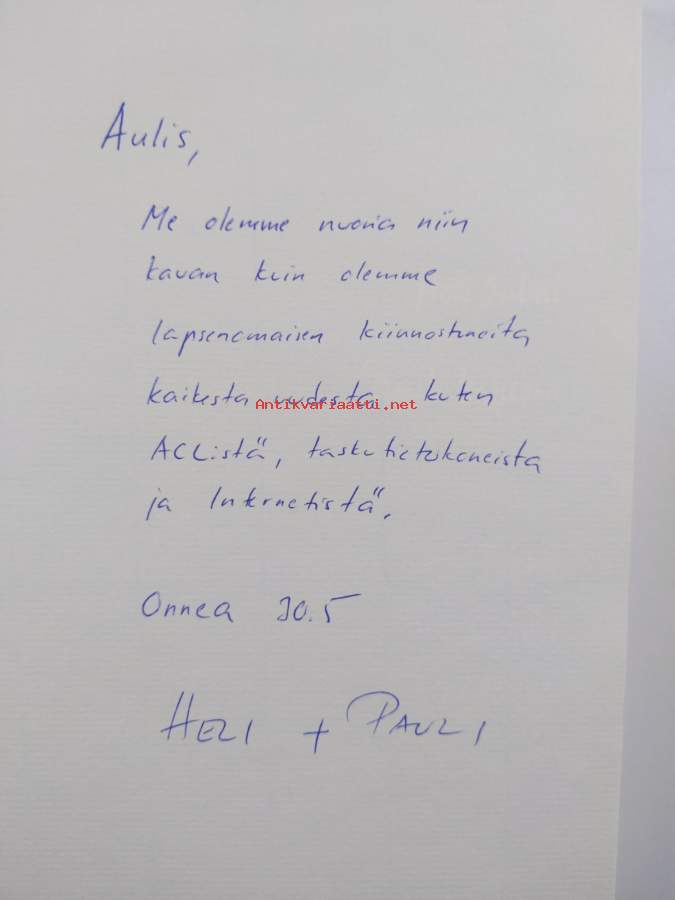 Aulis,
Me olemme nuoria niin
kauan kuin olemme
lapsenomaisen kiinnostuneita
kaikesta uudesta, kuten
Antikvariaatti.net
ACListä, taskutietokoneista
ja Internetistä.
Onnea 30.5
HELI + PAULI